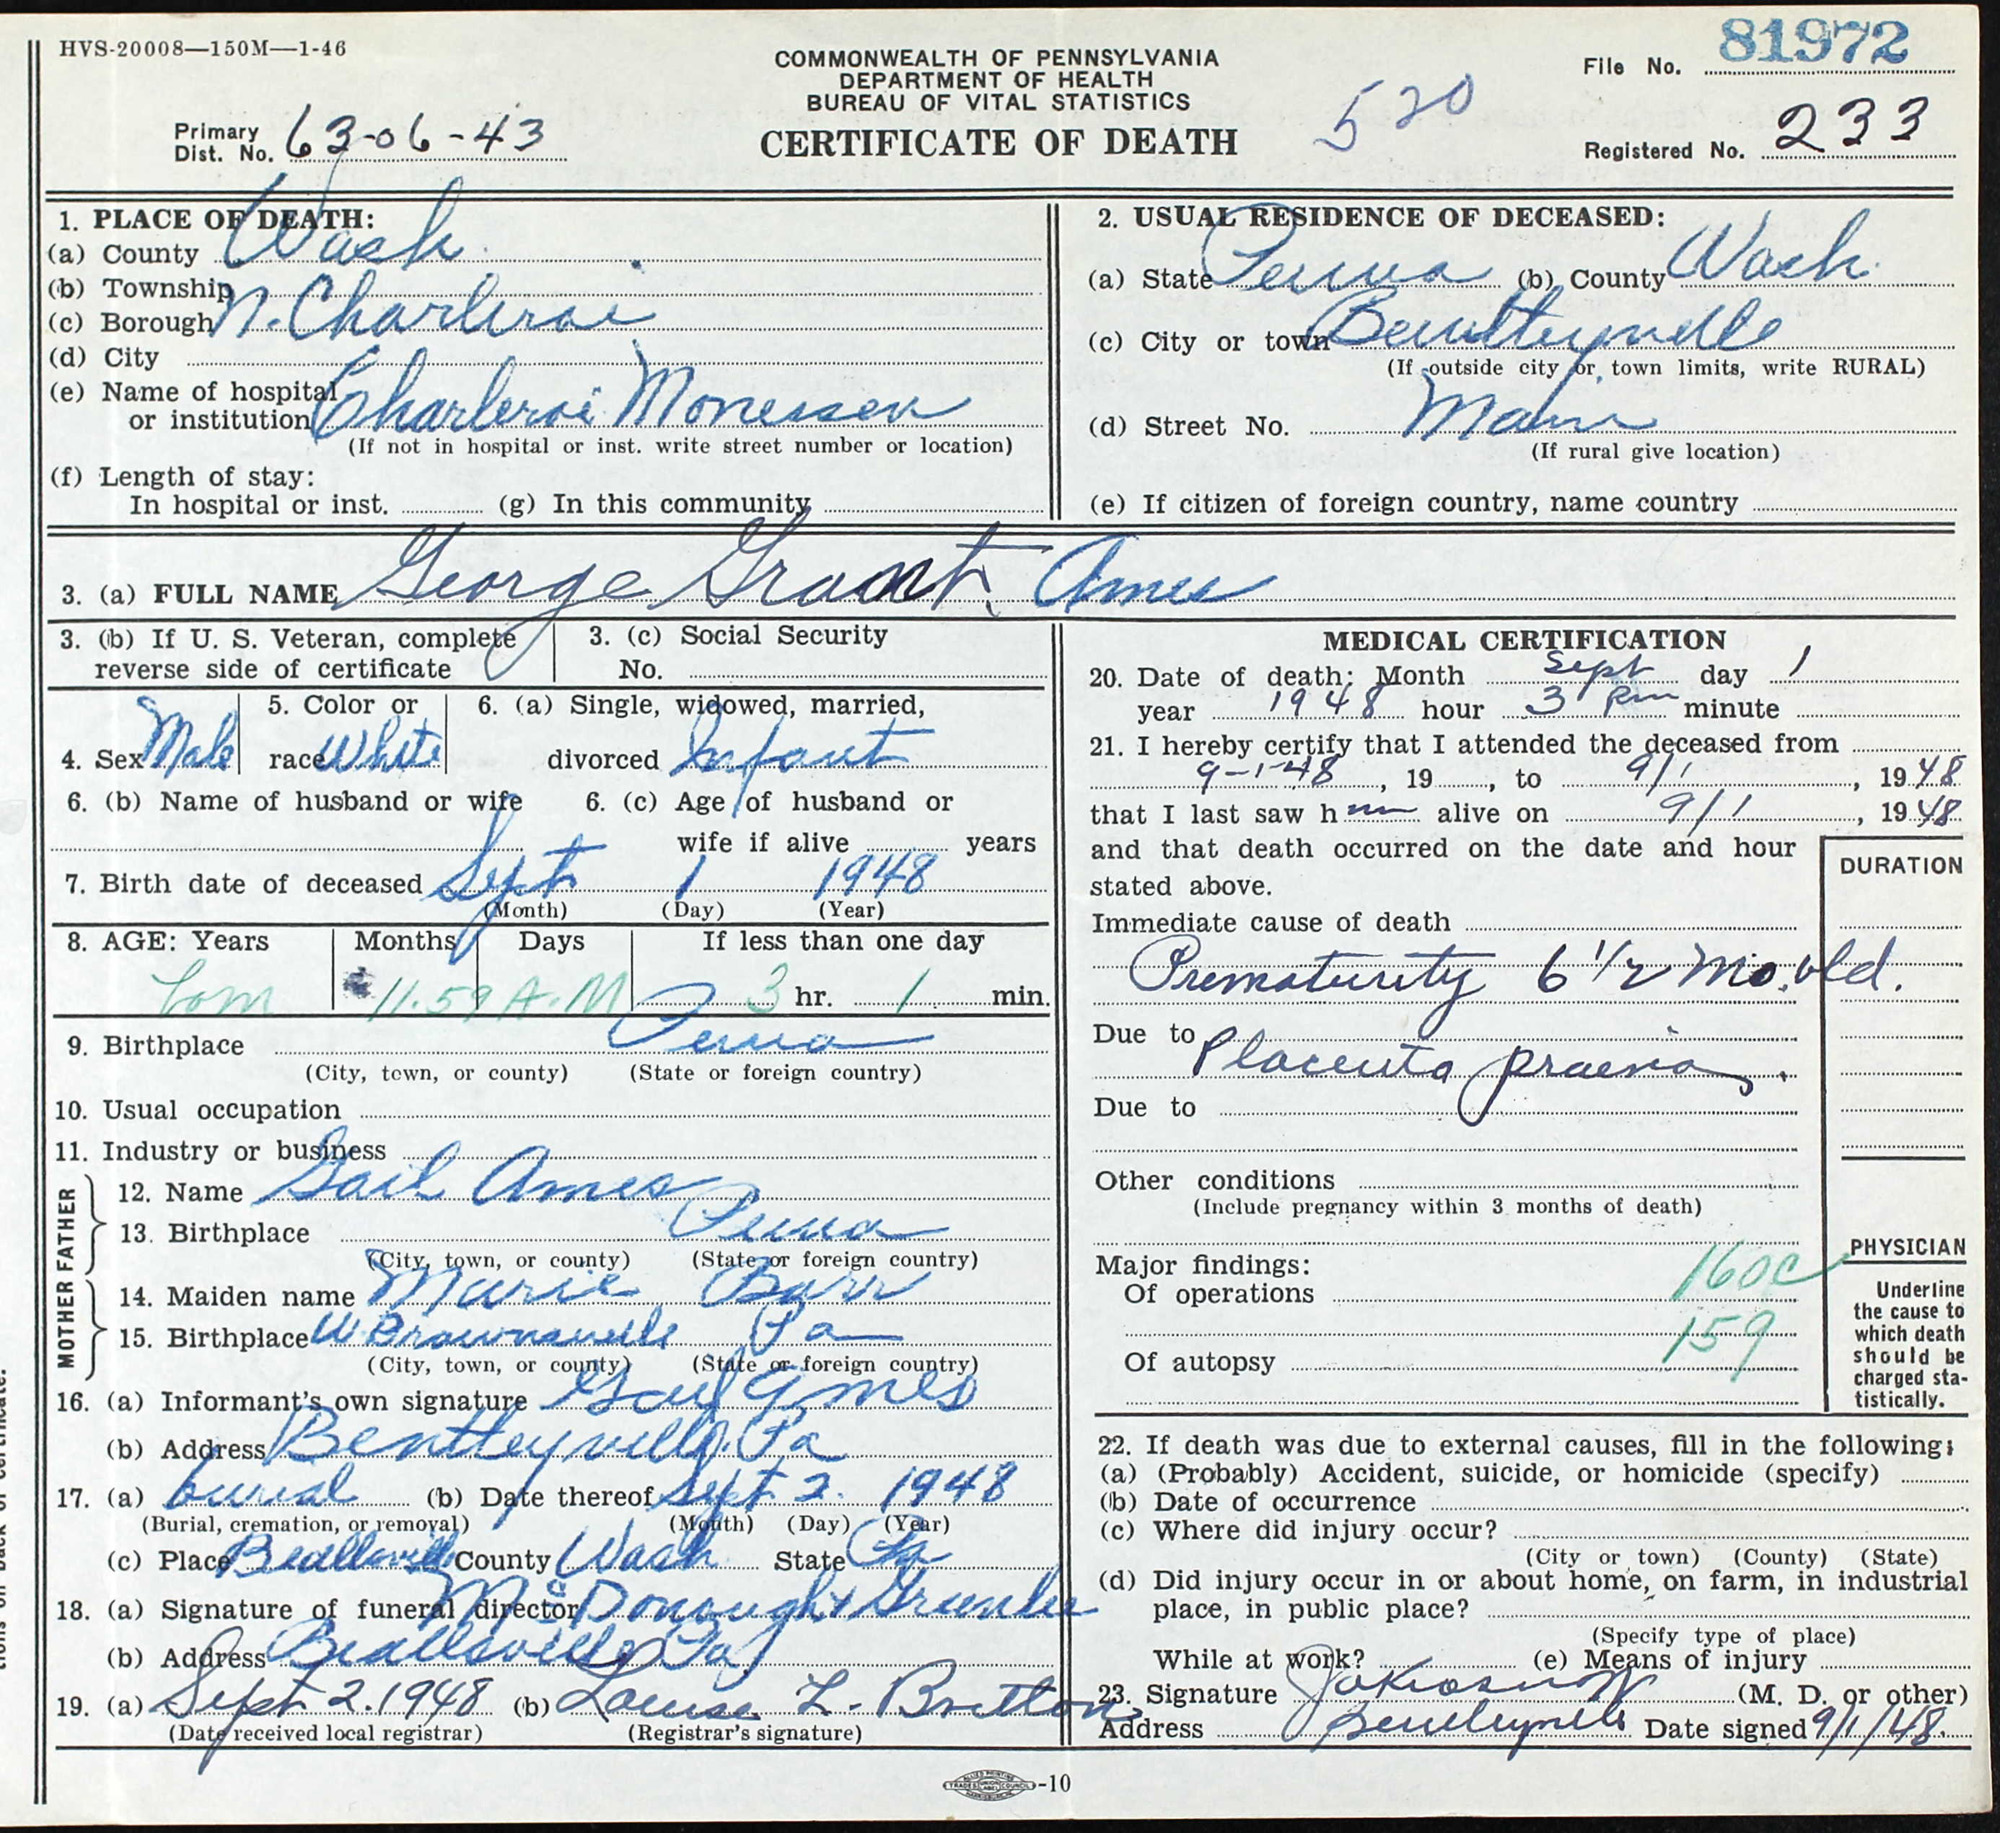 HVS-20008—150M—1-46
COMMONWEALTH OF PENNSYLVANIA
DEPARTMENT OF HEALTH
BUREAU OF VITAL STATISTICS
CERTIFICATE OF DEATH
520
File No. 81972
Primary
Dist. No. 63-06-43
Registered No. 233
1. PLACE OF DEATH:
(a) County Wash.
(b) Township
(c) Borough N. Charleroi
(d) City
(e) Name of hospital
or institution Charleroi Monessen
(If not in hospital or inst. write street number or location)
(f) Length of stay:
In hospital or inst. (g) In this community
2. USUAL RESIDENCE OF DECEASED:
(a) State Penna (b) County Wash.
(c) City or town Bentleyville
(If outside city or town limits, write RURAL)
(d) Street No. Main
(If rural give location)
(e) If citizen of foreign country, name country
3. (a) FULL NAME George Grant Ames
3. (b) If U. S. Veteran, complete
reverse side of certificate
3. (c) Social Security
No.
4. Sex Male
5. Color or
race White
6. (a) Single, widowed, married,
divorced Infant
6. (b) Name of husband or wife
6. (c) Age of husband or
wife if alive years
7. Birth date of deceased Sept 1 1948
(Month) (Day) (Year)
8. AGE: Years Months Days If less than one day
11.59 A.M 3 hr. 1 min.
9. Birthplace Penna
(City, town, or county) (State or foreign country)
10. Usual occupation
11. Industry or business
FATHER
12. Name Gail Ames
13. Birthplace Penna
(City, town, or county) (State or foreign country)
MOTHER
14. Maiden name Marie Barr
15. Birthplace W Brownsville Pa
(City, town, or county) (State or foreign country)
16. (a) Informant's own signature Gail Ames
(b) Address Bentleyville, Pa
17. (a) burial (b) Date thereof Sept 2. 1948
(Burial, cremation, or removal) (Month) (Day) (Year)
(c) Place Beallsville County Wash State Pa
18. (a) Signature of funeral director McDonough & Greenlee
(b) Address Beallsville Pa
19. (a) Sept 2. 1948 (b) Louise L. Britton
(Date received local registrar) (Registrar's signature)
MEDICAL CERTIFICATION
20. Date of death: Month Sept day 1
year 1948 hour 3 Pm minute
21. I hereby certify that I attended the deceased from
9-1-48, 19 , to 9/1, 1948
that I last saw him alive on 9/1, 1948
and that death occurred on the date and hour
stated above.
DURATION
Immediate cause of death
Prematurity 6 1/2 mo. old.
Due to Placenta praevia.
Due to
Other conditions
(Include pregnancy within 3 months of death)
Major findings:
Of operations 160c
159
Of autopsy
PHYSICIAN
Underline
the cause to
which death
should be
charged sta-
tistically.
22. If death was due to external causes, fill in the following:
(a) (Probably) Accident, suicide, or homicide (specify)
(b) Date of occurrence
(c) Where did injury occur?
(City or town) (County) (State)
(d) Did injury occur in or about home, on farm, in industrial
place, in public place?
(Specify type of place)
While at work? (e) Means of injury
23. Signature (M. D. or other)
Address Bentleyville Date signed 9/1/48.
-10